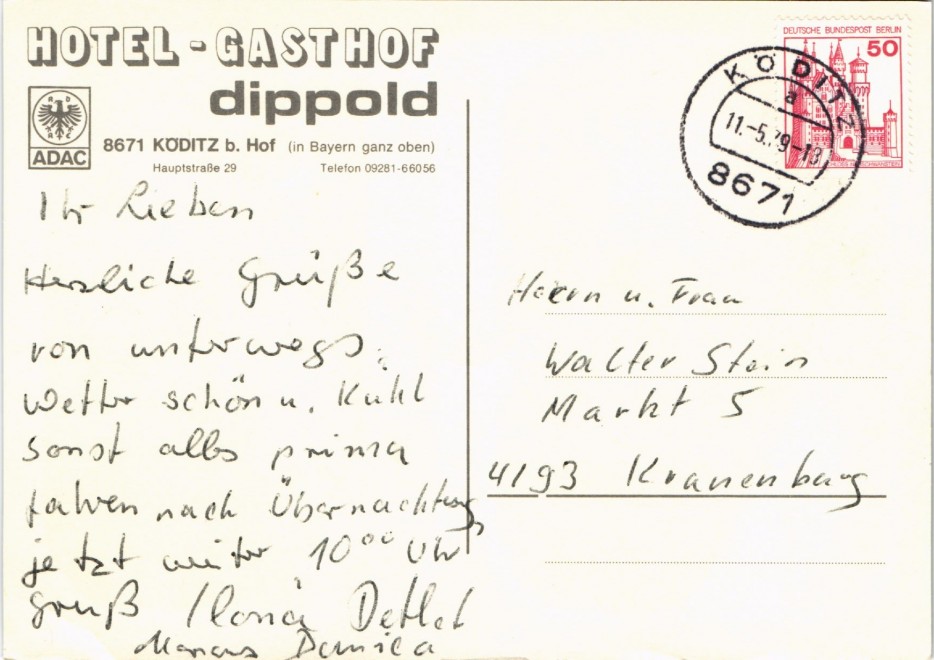 HOTEL - GASTHOF
dippold
ADAC
8671 KÖDITZ b. Hof (in Bayern ganz oben)
Hauptstraße 29 Telefon 09281-66056
DEUTSCHE BUNDESPOST BERLIN
50
KÖDITZ
a
11.-5.79-18
8671
Ihr Lieben
Herzliche Grüße
von unterwegs.
Wetter schön u. Kühl
sonst alles prima
fahren nach Übernachtung
jetzt weiter 10⁰⁰ Uhr
Gruß Ilona Detlef
Marcus Danica
Herrn u. Frau
Walter Stein
Markt 5
4193 Kranenburg